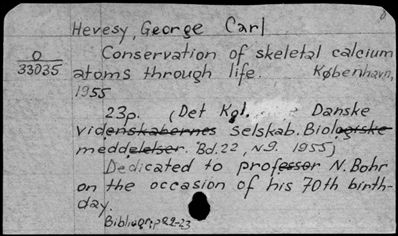 Hevesy, George Carl
O
33035
Conservation of skeletal calcium
atoms through life. København,
1955
23p. (Det Kgl. Danske
videnskabernes selskab. Biologiske
meddelelser. Bd. 22, n9. 1955)
Dedicated to professor N. Bohr
on the occasion of his 70th birth-
day.
Bibliogr.: p. 22-23